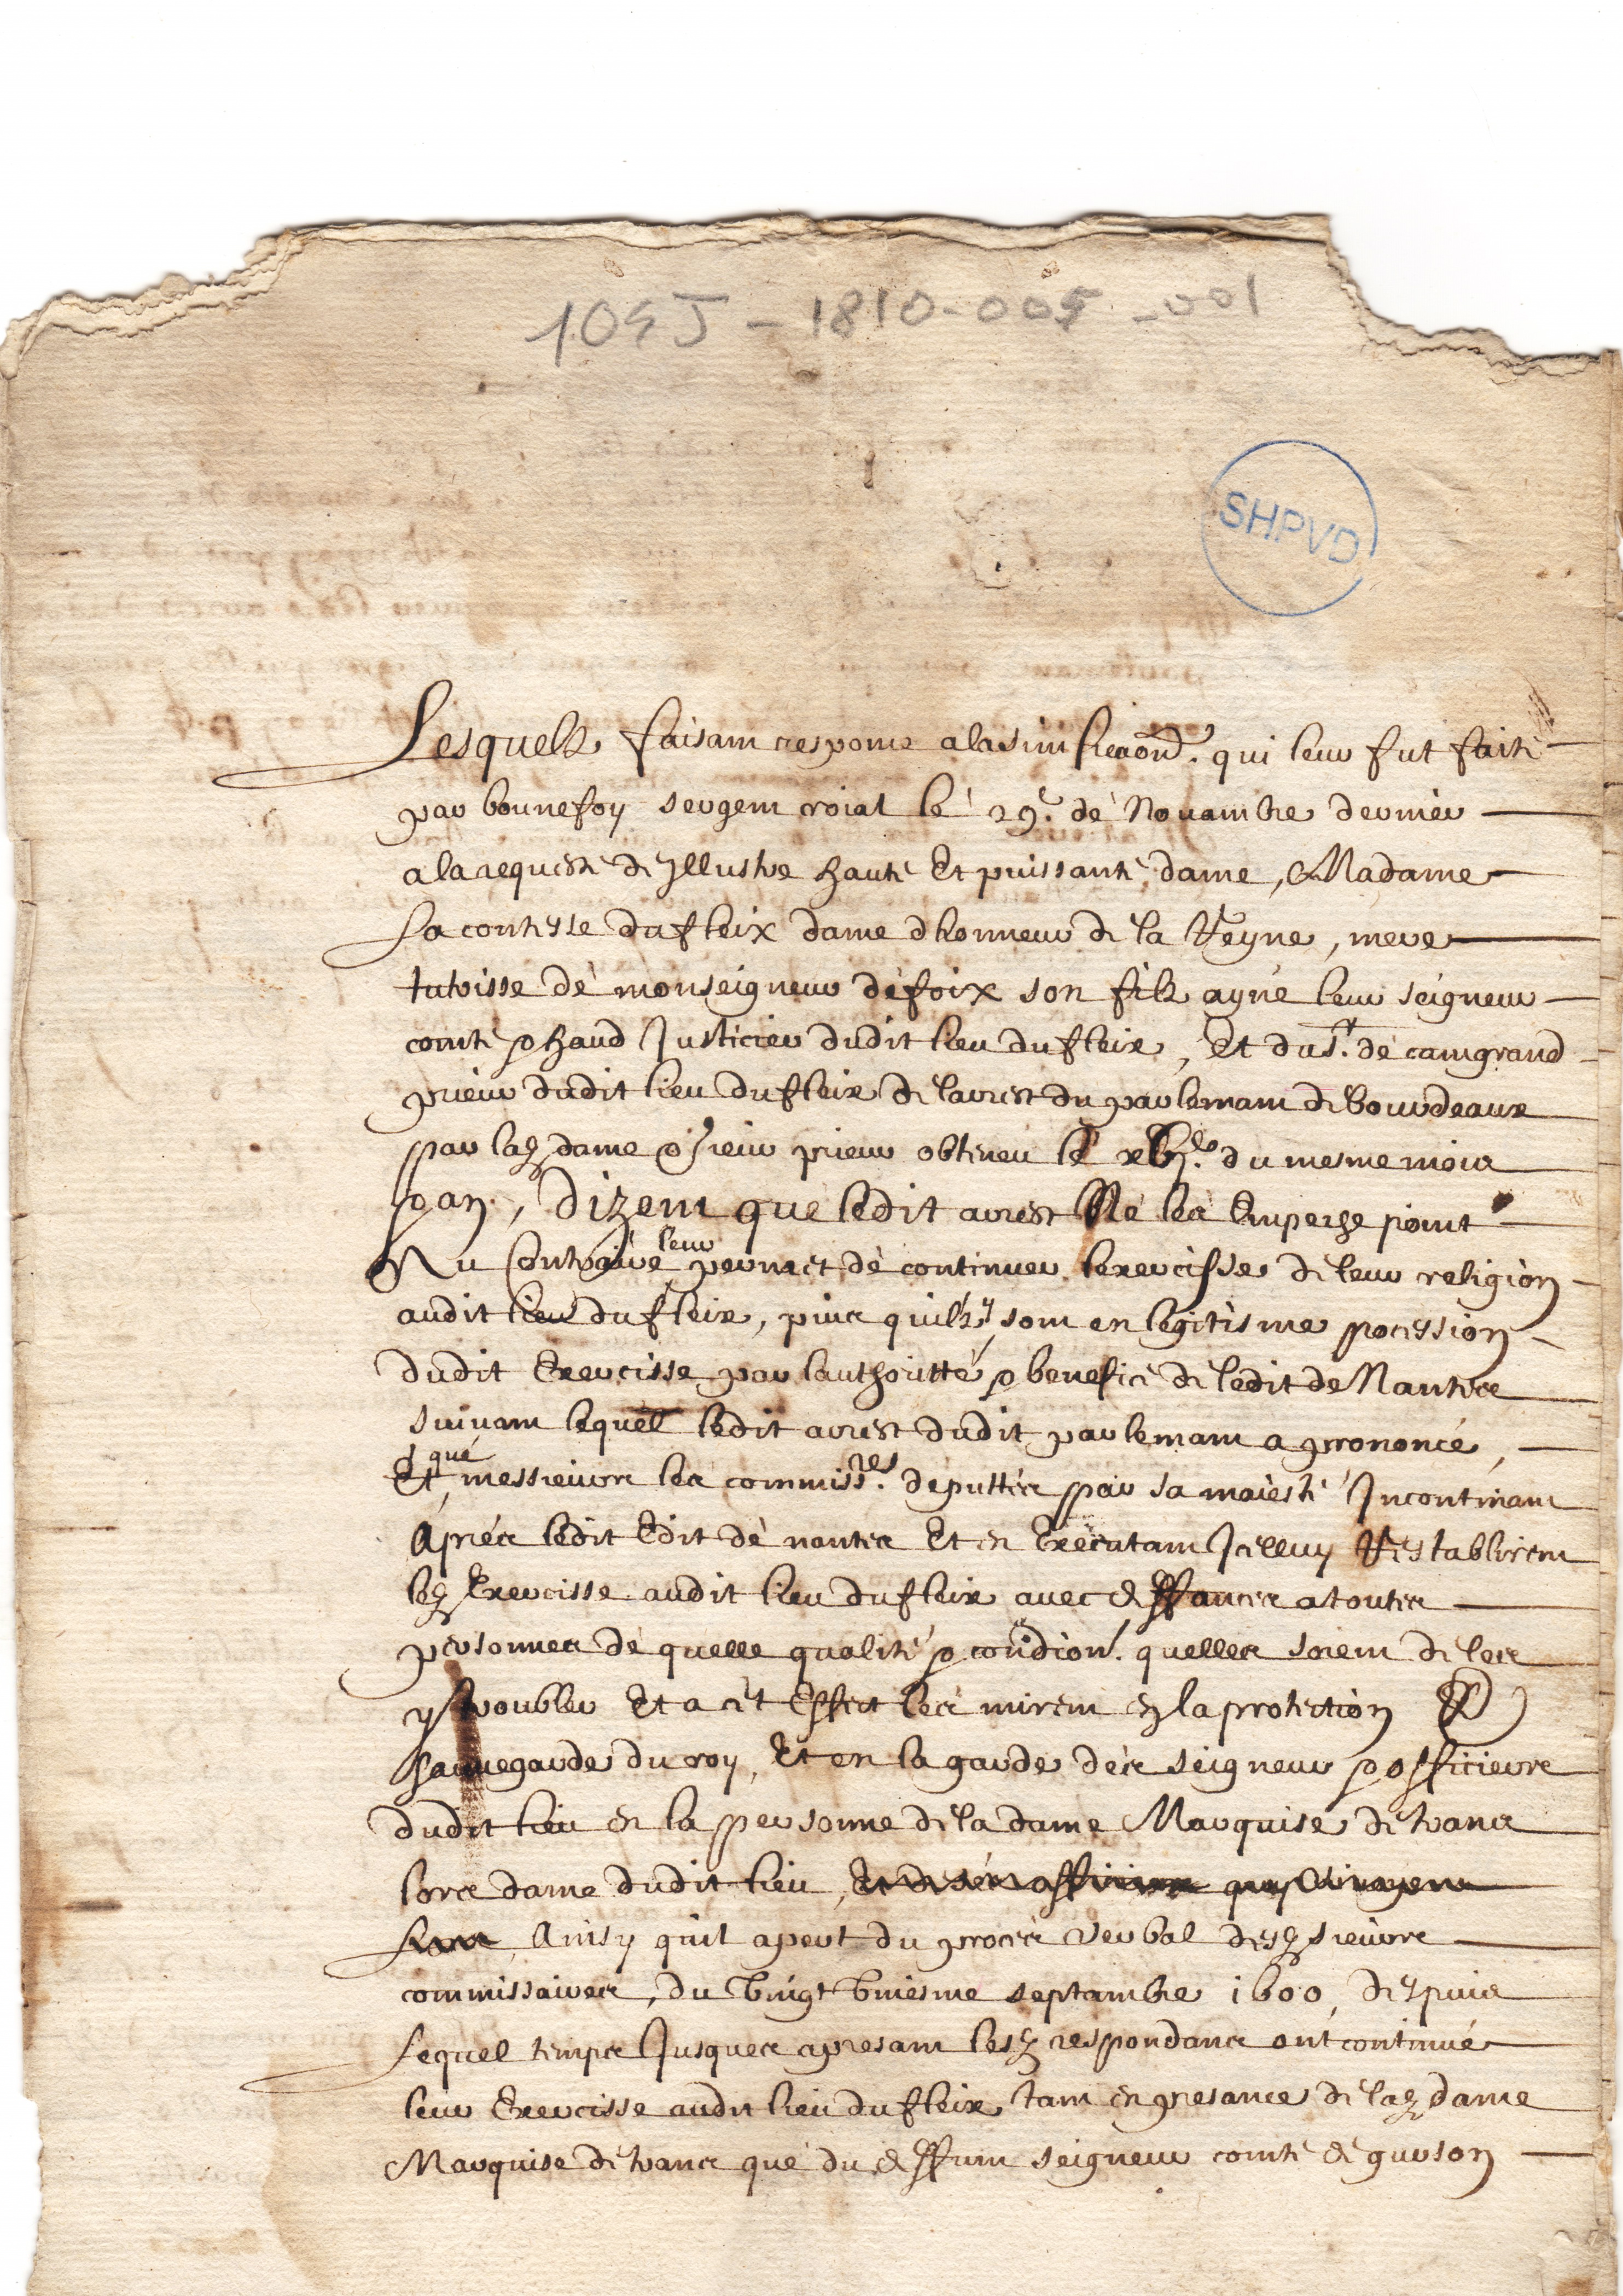 109J - 1810-005-001
SHPVD
Lesquelz faisant responce a la sinificaon. qui leur fut faite
par bonnefoy sergent roial le 29e. de Novambre dernier
a la requeste de Illustre haute Et puissante dame, Madame
La contesse du fleix dame dhonneur de la Reyne, mere
tutrisse de monseigneur de foix son filz ayné leur seigneur
comte & haud Justicier dudit lieu du fleix, Et du sr. de camgrand
prieur dudit lieu du fleix de larrest du parlemant de bourdeaux
par lad dame & sieur prieur obteneu le du mesme mois
& an, Dizent que ledit arrest Ne les Emperche point
Au Contraire leur permet de continuer lexercisse de leur religion
audit lieu du fleix, puis quilz y sont en legitisme pocession
dudit Exercisse par lauthoritté & benefice de ledit de Nantes
suivant lequel ledit arrest dudit parlemant a prononcé,
Et que messieurs les commissres. deputtés par sa maiesté Incontinant
Aprés ledit Edit de nantes Et en Executant Icelluy Restablirent
led Exercisse audit lieu du fleix avec deffances a toutes
personnes de quelle qualité & condion. quelles soient de les
y troubler Et a cet Effect les mirent en la protection &
sauvegarde du roy, Et en la garde des seigneur & officiers
dudit lieu en la personne de la dame Marquise de trans
lors dame dudit lieu, Et de ses officiers quy
Ainsy quil apert du proces verbal desd sieurs
commissaires, du Vingt Uniesme septambre 1600, despuis
Lequel temps Jusques a presant lesd respondans ont continué
leur Exercisse audit lieu du fleix tant en presance de lad dame
Marquise de trans que du deffunt seigneur comte de gurson